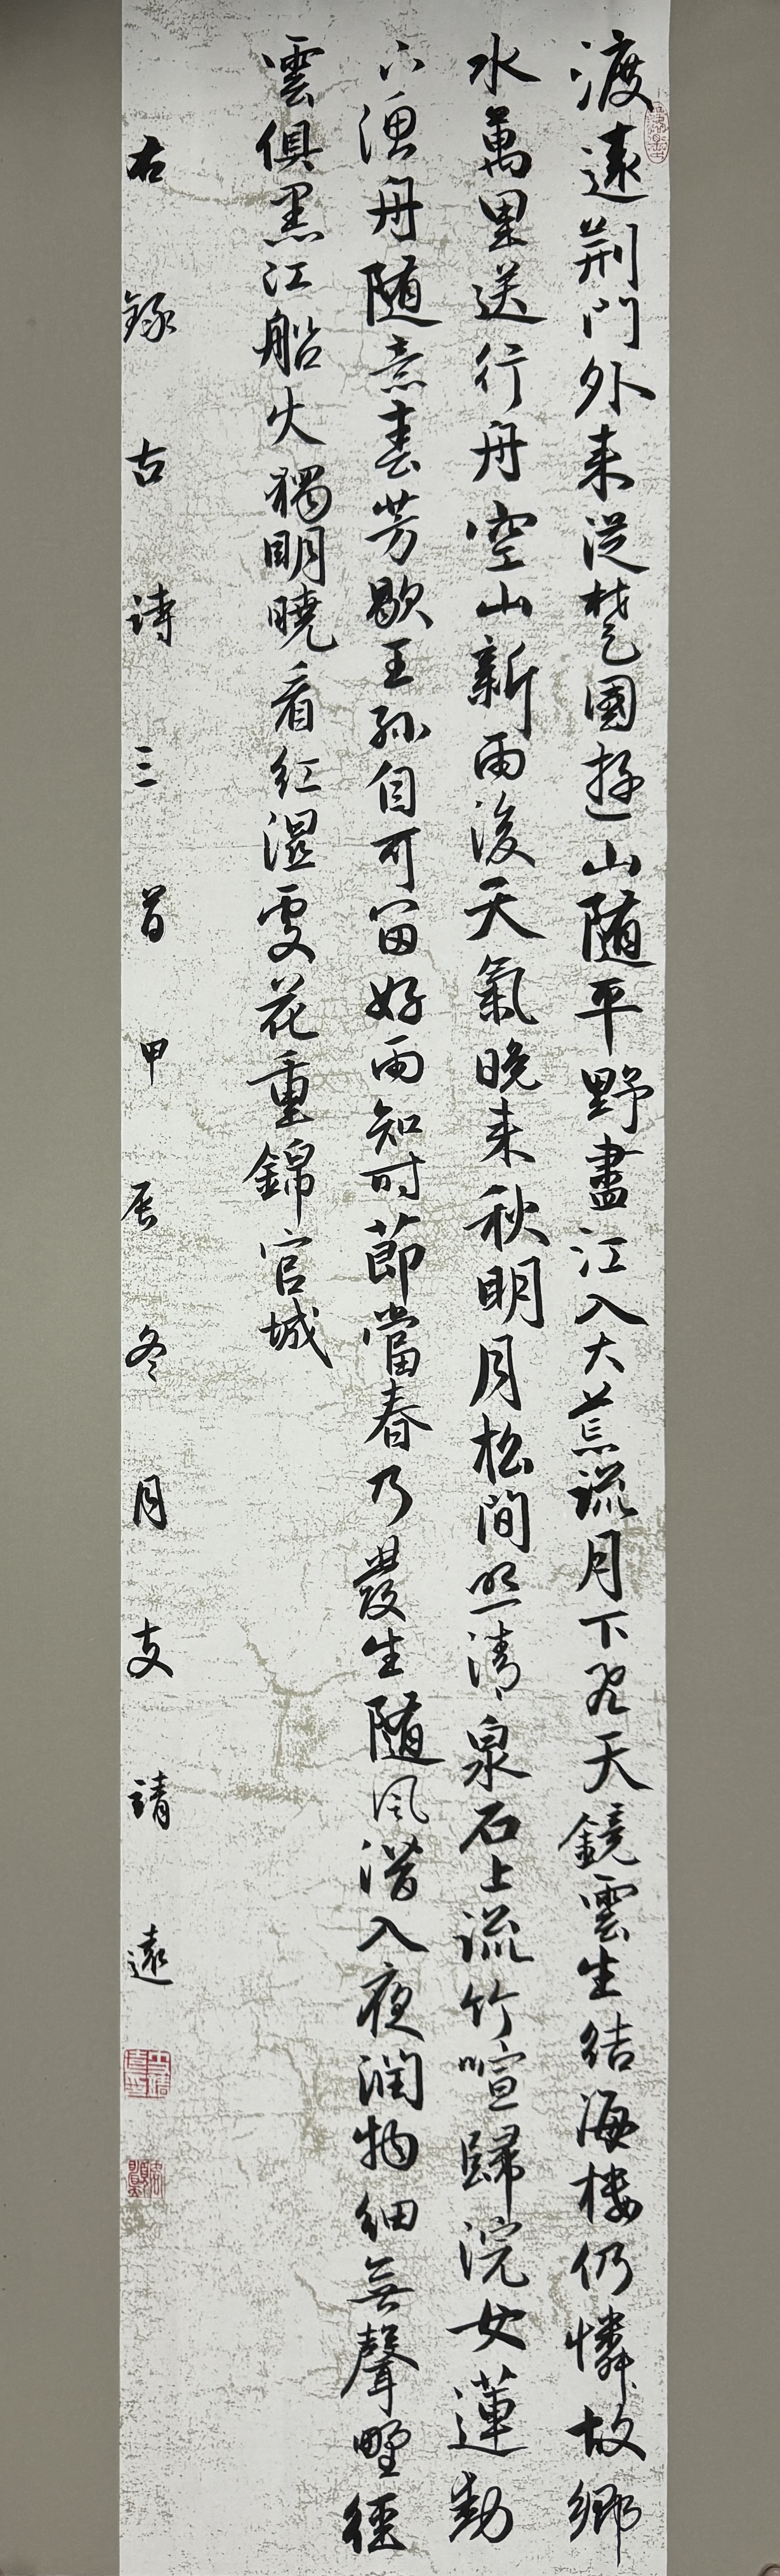 渡遠荆門外来從楚國遊山随平野盡江入大荒流月下飛天鏡雲生結海楼仍憐故鄉
水萬里送行舟空山新雨後天氣晚来秋明月松間照清泉石上流竹喧歸浣女蓮動
下漁舟随意春芳歇王孫自可留好雨知时節當春乃發生随風潛入夜潤物细無聲野徑
雲俱黑江船火獨明曉看红濕處花重錦官城
右録古詩三首甲辰冬月支靖遠